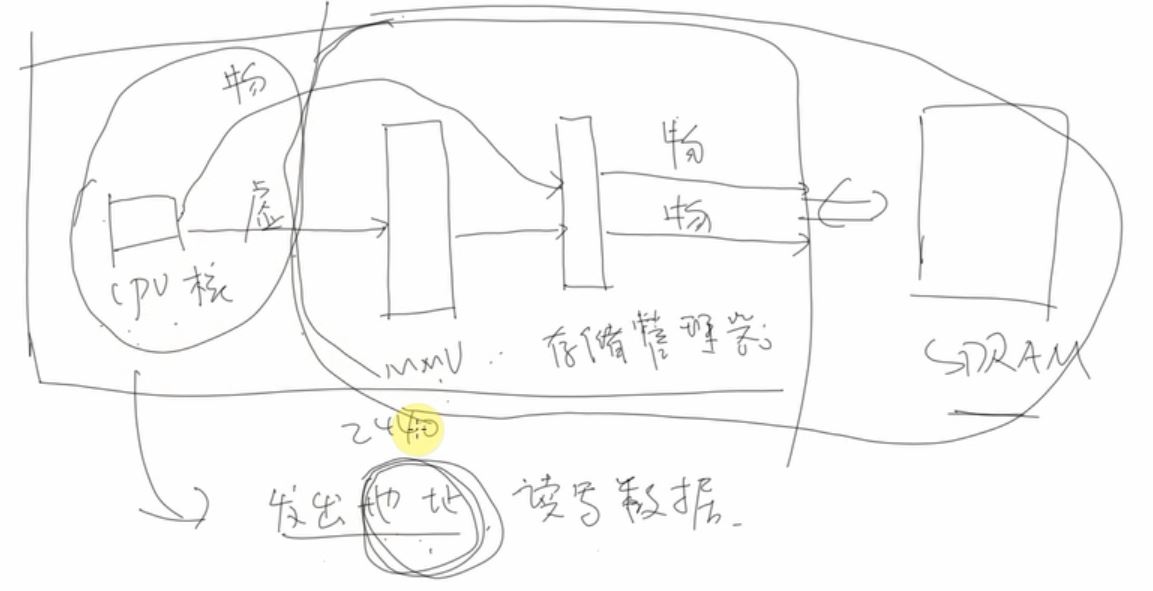 物
物
虚
物
CPU 核
MMU
存储管理器
SDRAM
2440
发出地址 读写数据